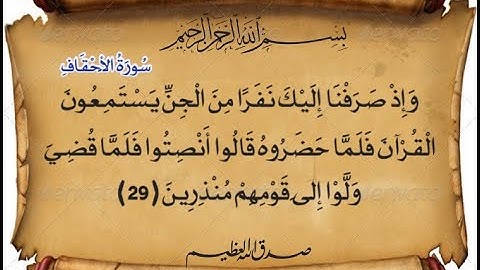 بِسْمِ اللَّهِ الرَّحْمَنِ الرَّحِيمِ
سُورَةُ الأَحْقَافِ
وَإِذْ صَرَفْنَا إِلَيْكَ نَفَرًا مِنَ الْجِنِّ يَسْتَمِعُونَ
الْقُرْآنَ فَلَمَّا حَضَرُوهُ قَالُوا أَنْصِتُوا فَلَمَّا قُضِيَ
وَلَّوْا إِلَى قَوْمِهِمْ مُنْذِرِينَ (29)
صدق الله العظيم